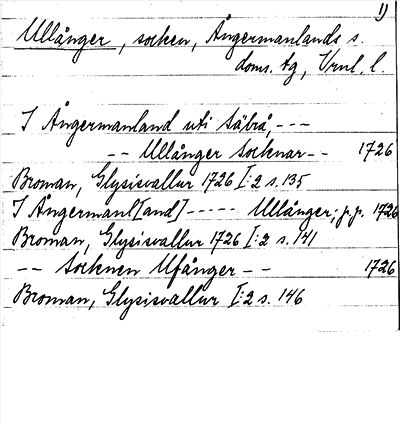 1)
Ullånger, socken, Ångermanlands s.
doms. tg, Vrnl. l.
I Ångermanland uti Säbrå, ---
-- Ullånger Socknar -- 1726
Broman, Glysisvallur 1726 I:2 s. 135
I Ångermanl[and] ----- Ullånger, p.p. 1726
Broman, Glysisvallur 1726 I:2 s. 141
-- Socknen Ulfånger -- 1726
Broman, Glysisvallur I:2 s. 146